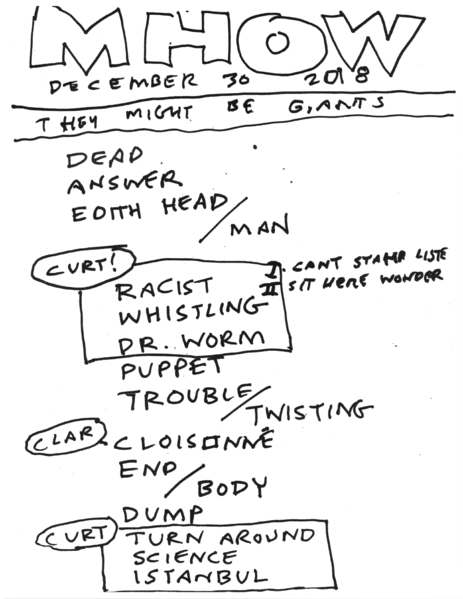 MHOW
DECEMBER 30 2018
THEY MIGHT BE GIANTS
DEAD
ANSWER
EDITH HEAD
/ MAN
CURT!
I. CANT STAND LISTE
II SIT HERE WONDER
RACIST
WHISTLING
DR. WORM
PUPPET
TROUBLE
/ TWISTING
CLAR. CLOISONNÉ
END
/ BODY
DUMP
CURT TURN AROUND
SCIENCE
ISTANBUL